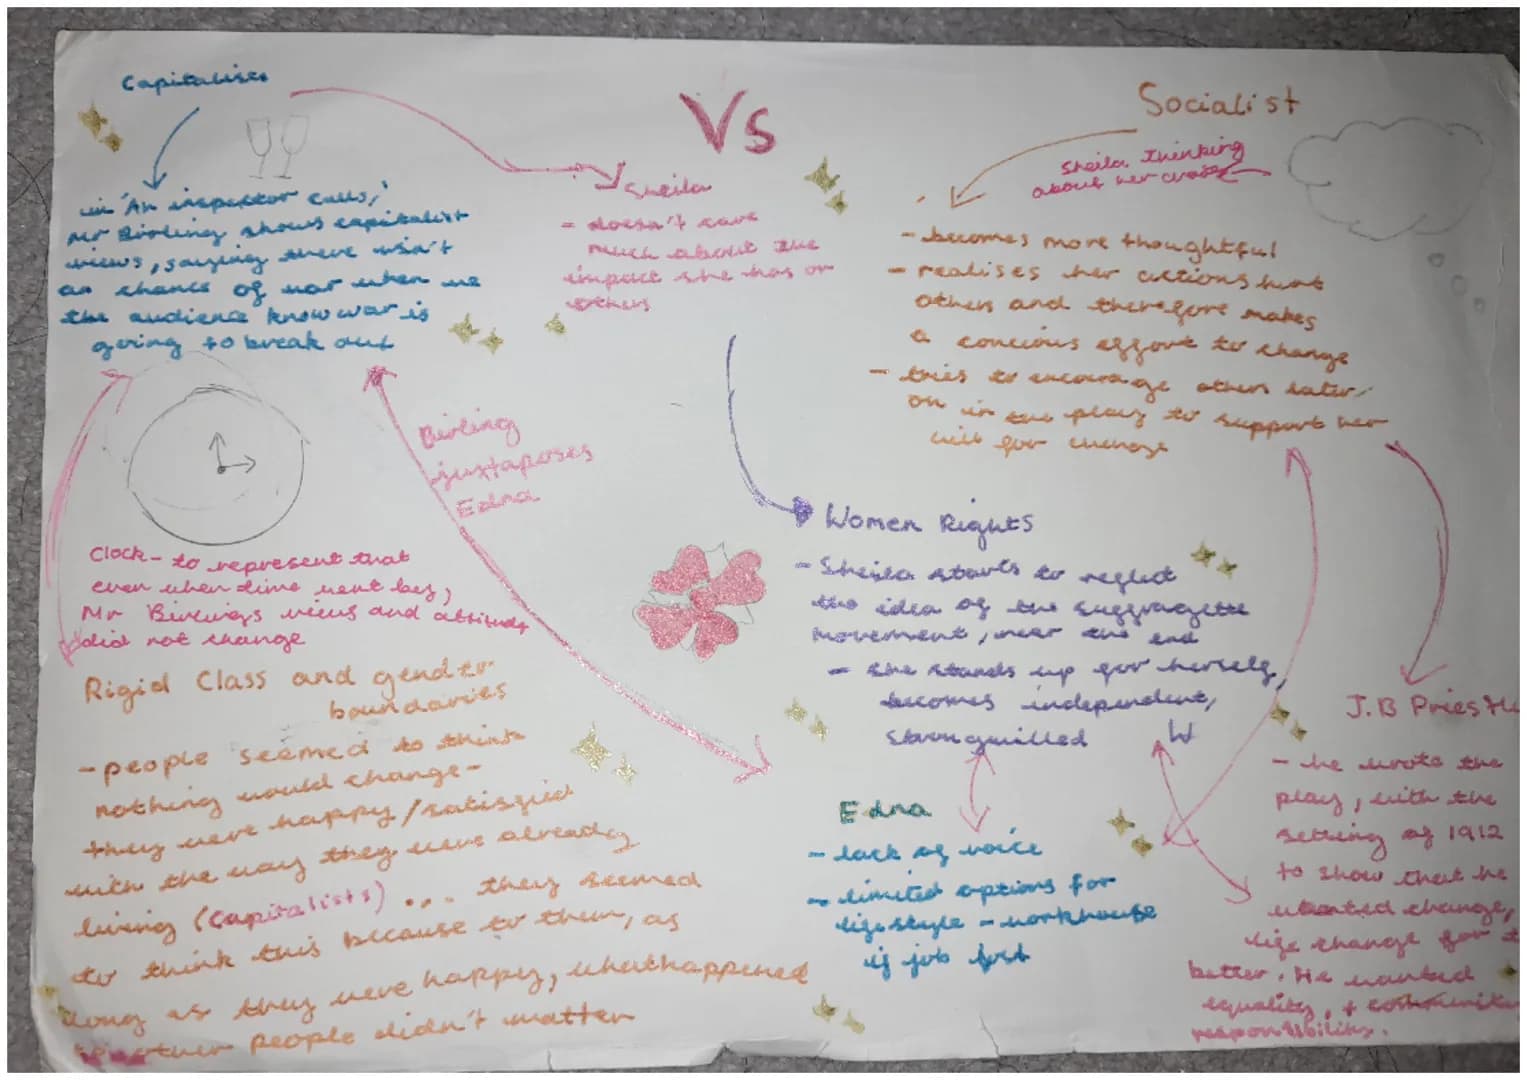 Capitalises
Vs
Socialist
in 'An inspector calls,'
Mr Birling shows capitalist
views, saying there isn't
an chance of war when we
the audience know war is
going to break out
Sheila
- doesn't care
much about the
impact she has on
others
Sheila thinking
about her
- becomes more thoughtful
- realises her actions hurt
others and therefore makes
a concious effort to change
- tries to encourage others later
on in the play to support her
will for change
Birling
juxtaposes
Edna
Clock - to represent that
even when time went by,
Mr Birlings views and attitude
did not change
Women Rights
- Sheila starts to reflect
the idea of the suffragette
movement, near the end
- she stands up for herself,
becomes independent,
strongwilled W
Rigid Class and gender
boundaries
- people seemed to think
nothing would change -
they were happy/satisfied
with the way they were already
living (Capitalists) ... they seemed
to think this because to them, as
long as they were happy, whathappened
to other people didn't matter
Edna
- lack of voice
- limited options for
lifestyle - workhouse
if job lost
J.B
- he wrote the
play, with the
setting of 1912
to show that he
wanted change,
life change for
better. He wanted
equality, +
responsibility.